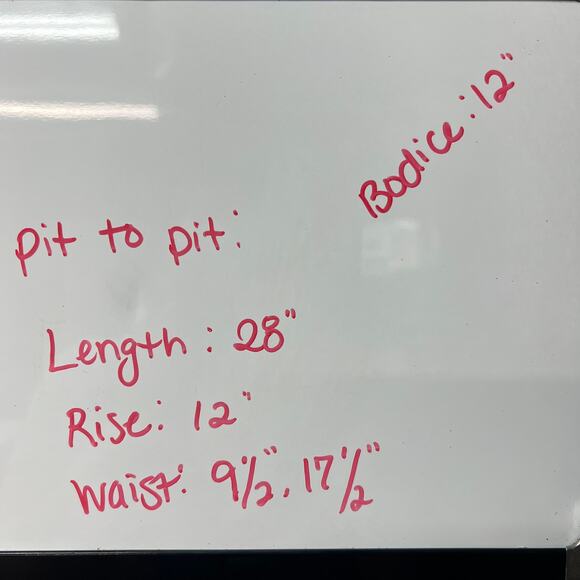 Bodice: 12"
pit to pit:
Length: 28"
Rise: 12"
Waist: 9 1/2", 17 1/2"